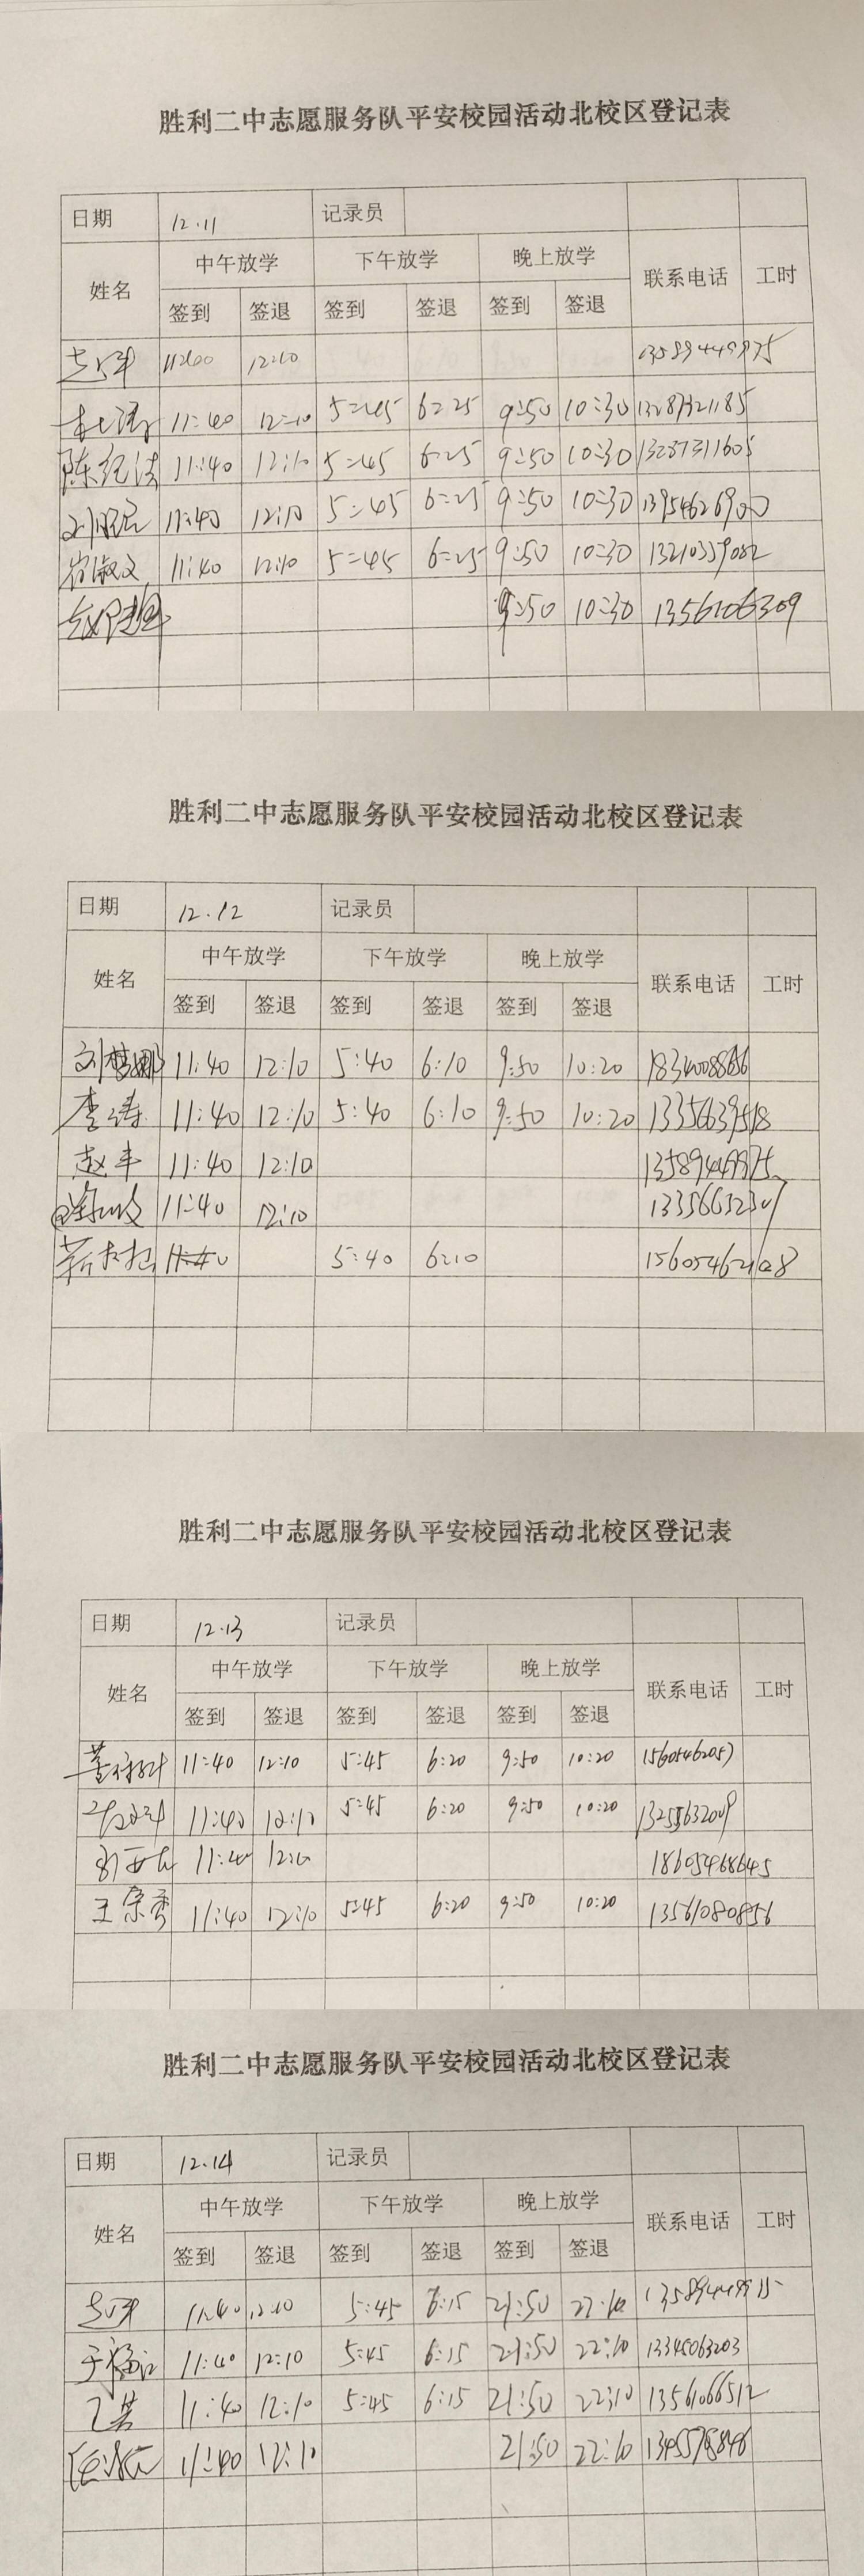 胜利二中志愿服务队平安校园活动北校区登记表
日期 12.11 记录员
姓名 中午放学 下午放学 晚上放学 联系电话 工时
签到 签退 签到 签退 签到 签退
12:10 13589449975
11:40 12:10 5:45 6:25 9:50 10:30 13287321185
陈纪法 11:40 12:10 5:45 6:25 9:50 10:30 13287311605
11:40 12:10 5:45 6:25 9:50 10:30 13954626900
崔淑文 11:40 12:10 5:45 6:25 9:50 10:30 13210359082
9:50 10:30 1356106309
胜利二中志愿服务队平安校园活动北校区登记表
日期 12.12 记录员
姓名 中午放学 下午放学 晚上放学 联系电话 工时
签到 签退 签到 签退 签到 签退
刘梦娜 11:40 12:10 5:40 6:10 9:50 10:20
李涛 11:40 12:10 5:40 6:10 9:50 10:20 13356639518
赵丰 11:40 12:10 13589449975
11:40 12:10
5:40 6:10 15605462128
胜利二中志愿服务队平安校园活动北校区登记表
日期 12.13 记录员
姓名 中午放学 下午放学 晚上放学 联系电话 工时
签到 签退 签到 签退 签到 签退
11:40 12:10 5:45 6:20 9:50 10:20
11:40 12:10 5:45 6:20 9:50 10:20
11:40 18605468645
王宗秀 11:40 12:10 5:45 6:20 9:50 10:20 13561080856
胜利二中志愿服务队平安校园活动北校区登记表
日期 12.14 记录员
姓名 中午放学 下午放学 晚上放学 联系电话 工时
签到 签退 签到 签退 签到 签退
11:40 12:10 5:45 6:15 21:50 22:10
于福江 11:40 12:10 5:45 6:15 21:50 22:10 13345063203
11:40 12:10 5:45 6:15 21:50 22:10 13561066512
11:40 12:10 21:50 22:10